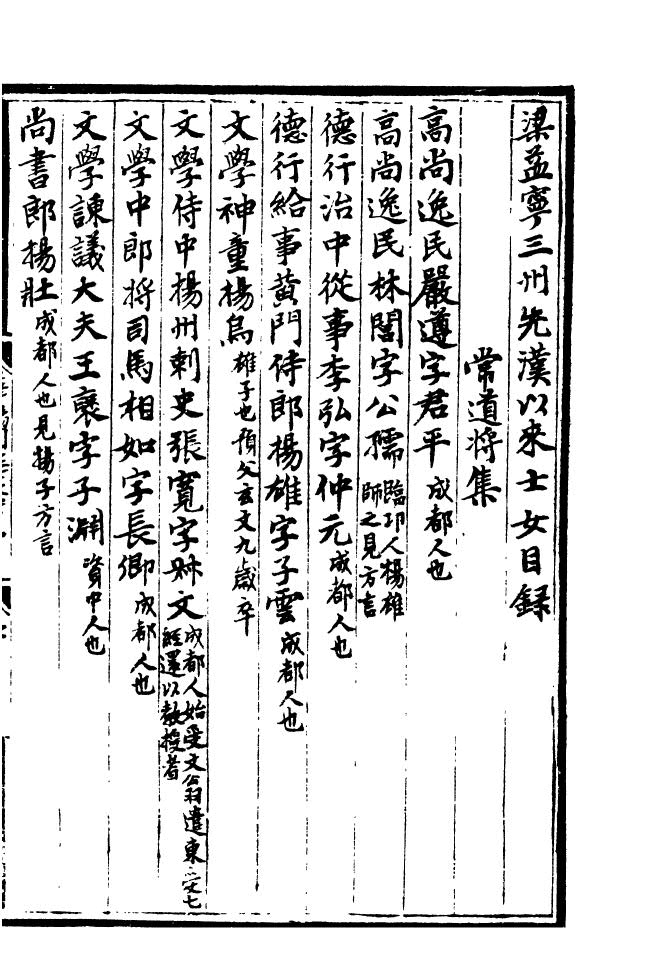 梁益寧三州先漢以來士女目録
常道將集
高尚逸民嚴遵字君平 成都人也
高尚逸民林閭字公孺 臨邛人楊雄師之見方言
德行治中從事李弘字仲元 成都人也
德行給事黄門侍郎楊雄字子雲 成都人也
文學神童楊烏 雄子也預父玄文九歲卒
文學侍中楊州刺史張寛字叔文 成都人始受文翁遣東受七經還以教授者
文學中郎將司馬相如字長卿 成都人也
文學諫議大夫王襃字子淵 資中人也
尚書郎楊壯 成都人也見楊子方言